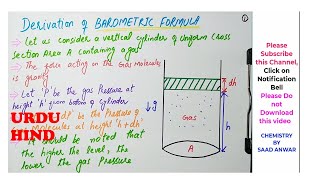 Derivation of BAROMETRIC FORMULA
→ Let us consider a vertical cylinder of Uniform Cross
Section Area A containing a gas
→ The force acting on the Gas molecules
is gravity
→ Let 'P' be the gas Pressure at
height 'h' from bottom of cylinder
dP' be the Pressure of
Molecules at height 'h+dh'
should be noted that
the higher the level, the
lower the gas Pressure
URDU
HIND
dh
↓g
Gas
h
A
Please
Subscribe
this Channel,
Click on
Notification
Bell
Please Do
not
Download
this video
CHEMISTRY
BY
SAAD ANWAR